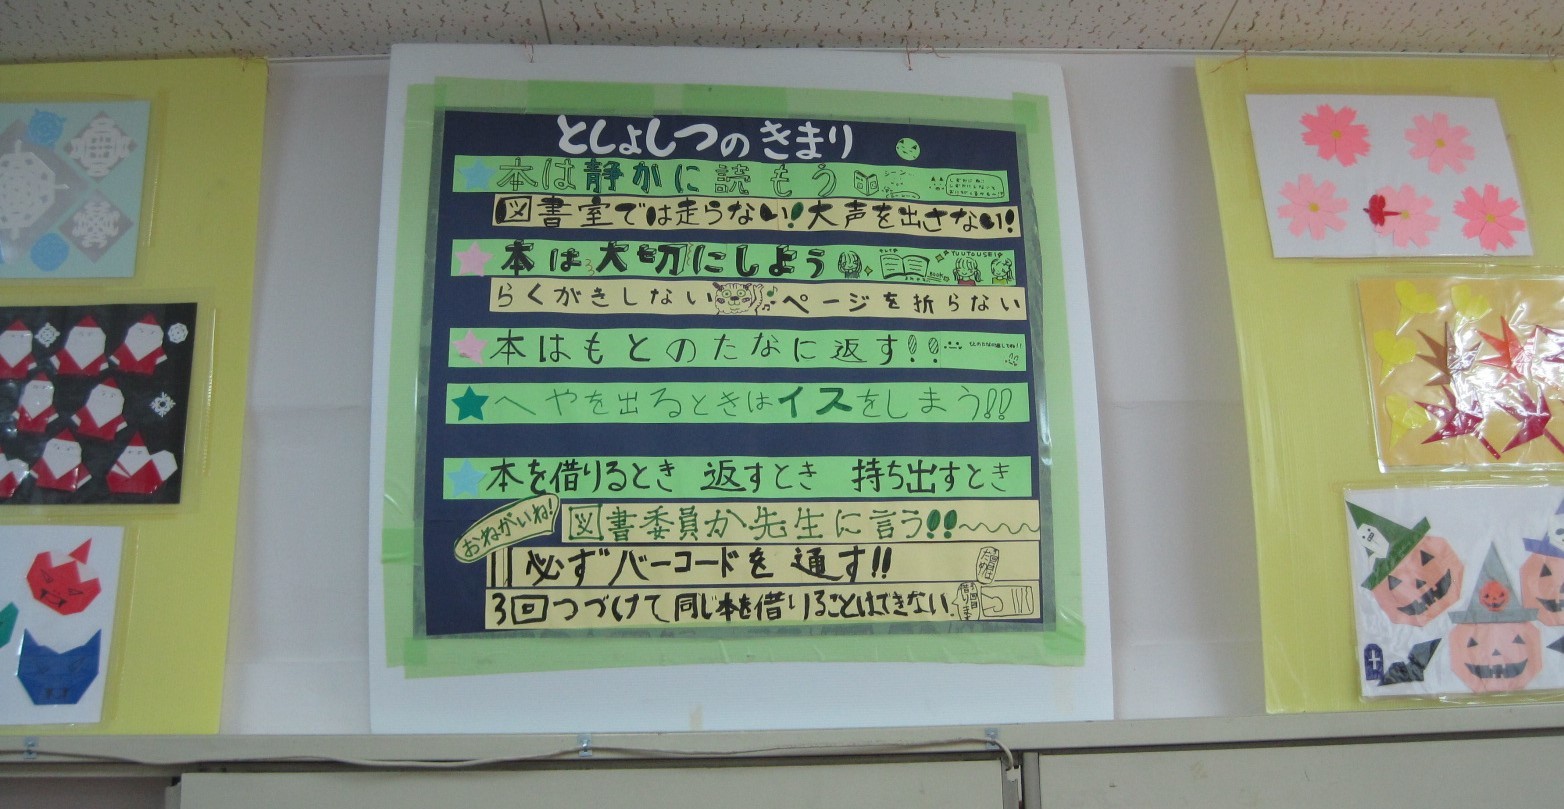 としょしつのきまり
本は静かに読もう
図書室では走らない!大声を出さない!
本は大切にしよう
YUUTOUSEI
BOOK
らくがきしない ページを折らない
本はもとのたなに返す!!
へやを出るときはイスをしまう!!
本を借りるとき 返すとき 持ち出すとき
おねがいね!
図書委員か先生に言う!!
必ずバーコードを通す!!
3回つづけて同じ本を借りることはできない。